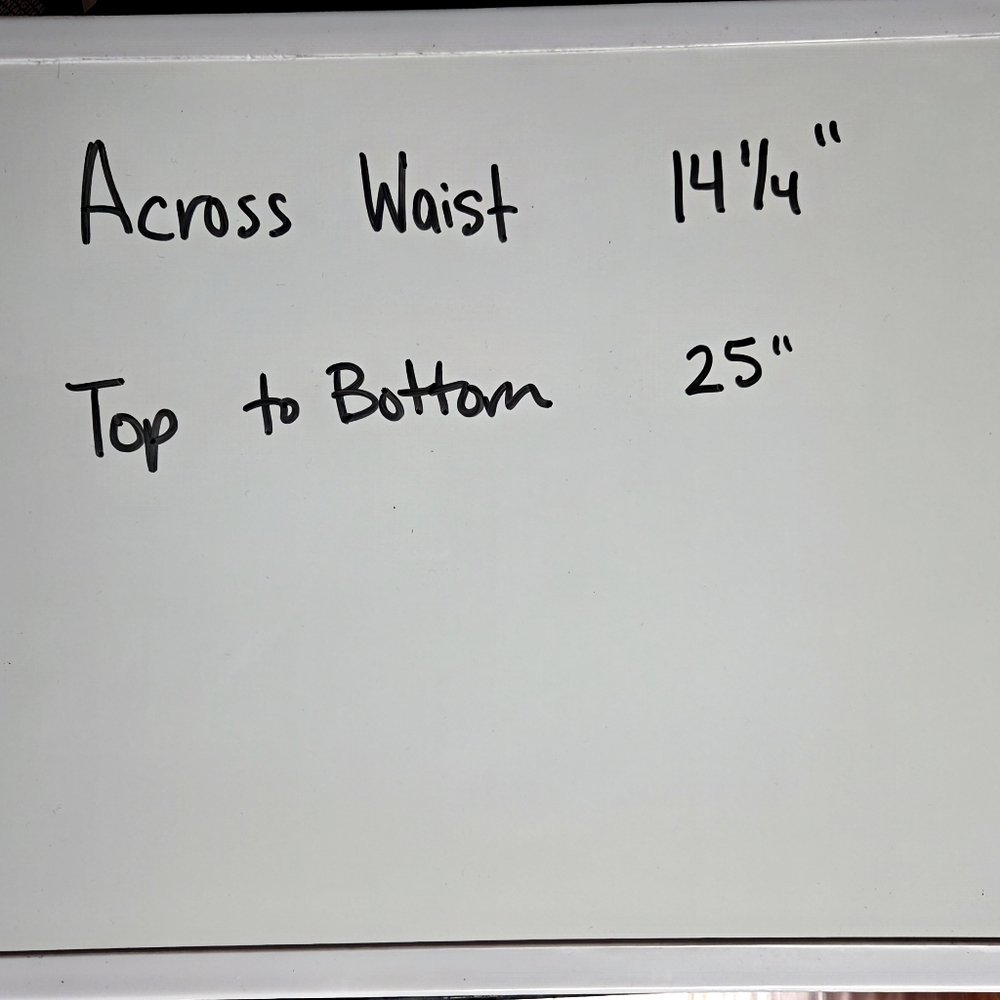 Across Waist 14 1/4"
Top to Bottom 25"